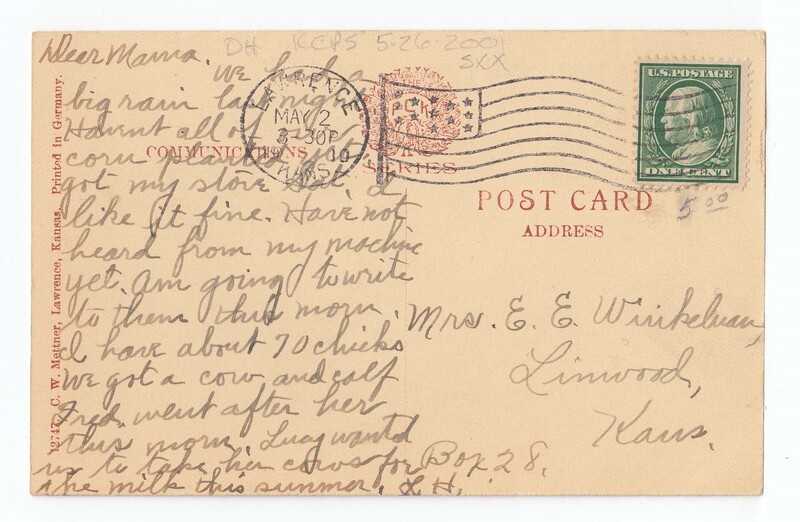 DH KCPS 5-26-2001
SXX
Dear Mama.
We had a
big rain last night
Havent all of
corn planted yet
got my stove
like it fine. Have not
heard from my machine
yet. Am going to write
to them this morn.
I have about 70 chicks
We got a cow and calf
Fred went after her
this morn. Lucy wants
us to take her cows for
the milk this summer. L.H.
LAWRENCE
MAY 2
3-30P
1910
KANS.
THE
SERIES
COMMUNICATIONS
U.S. POSTAGE
ONE CENT
5 00
POST CARD
ADDRESS
Mrs. E. E. Winkelman,
Linwood,
Kans.
Box 28.
12747 C. W. Mettner, Lawrence, Kansas. Printed in Germany.